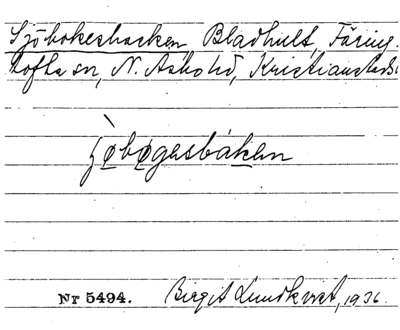 Sjöbokesbacken Bladhult, Färing-
tofta sn, N. Åsbo hd, Kristianstads l.
jøbøgesbákan
Nr 5494. Birgit Lundkvist, 1936.